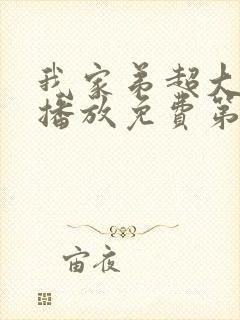 我家弟超大
播放免费第
宙夜